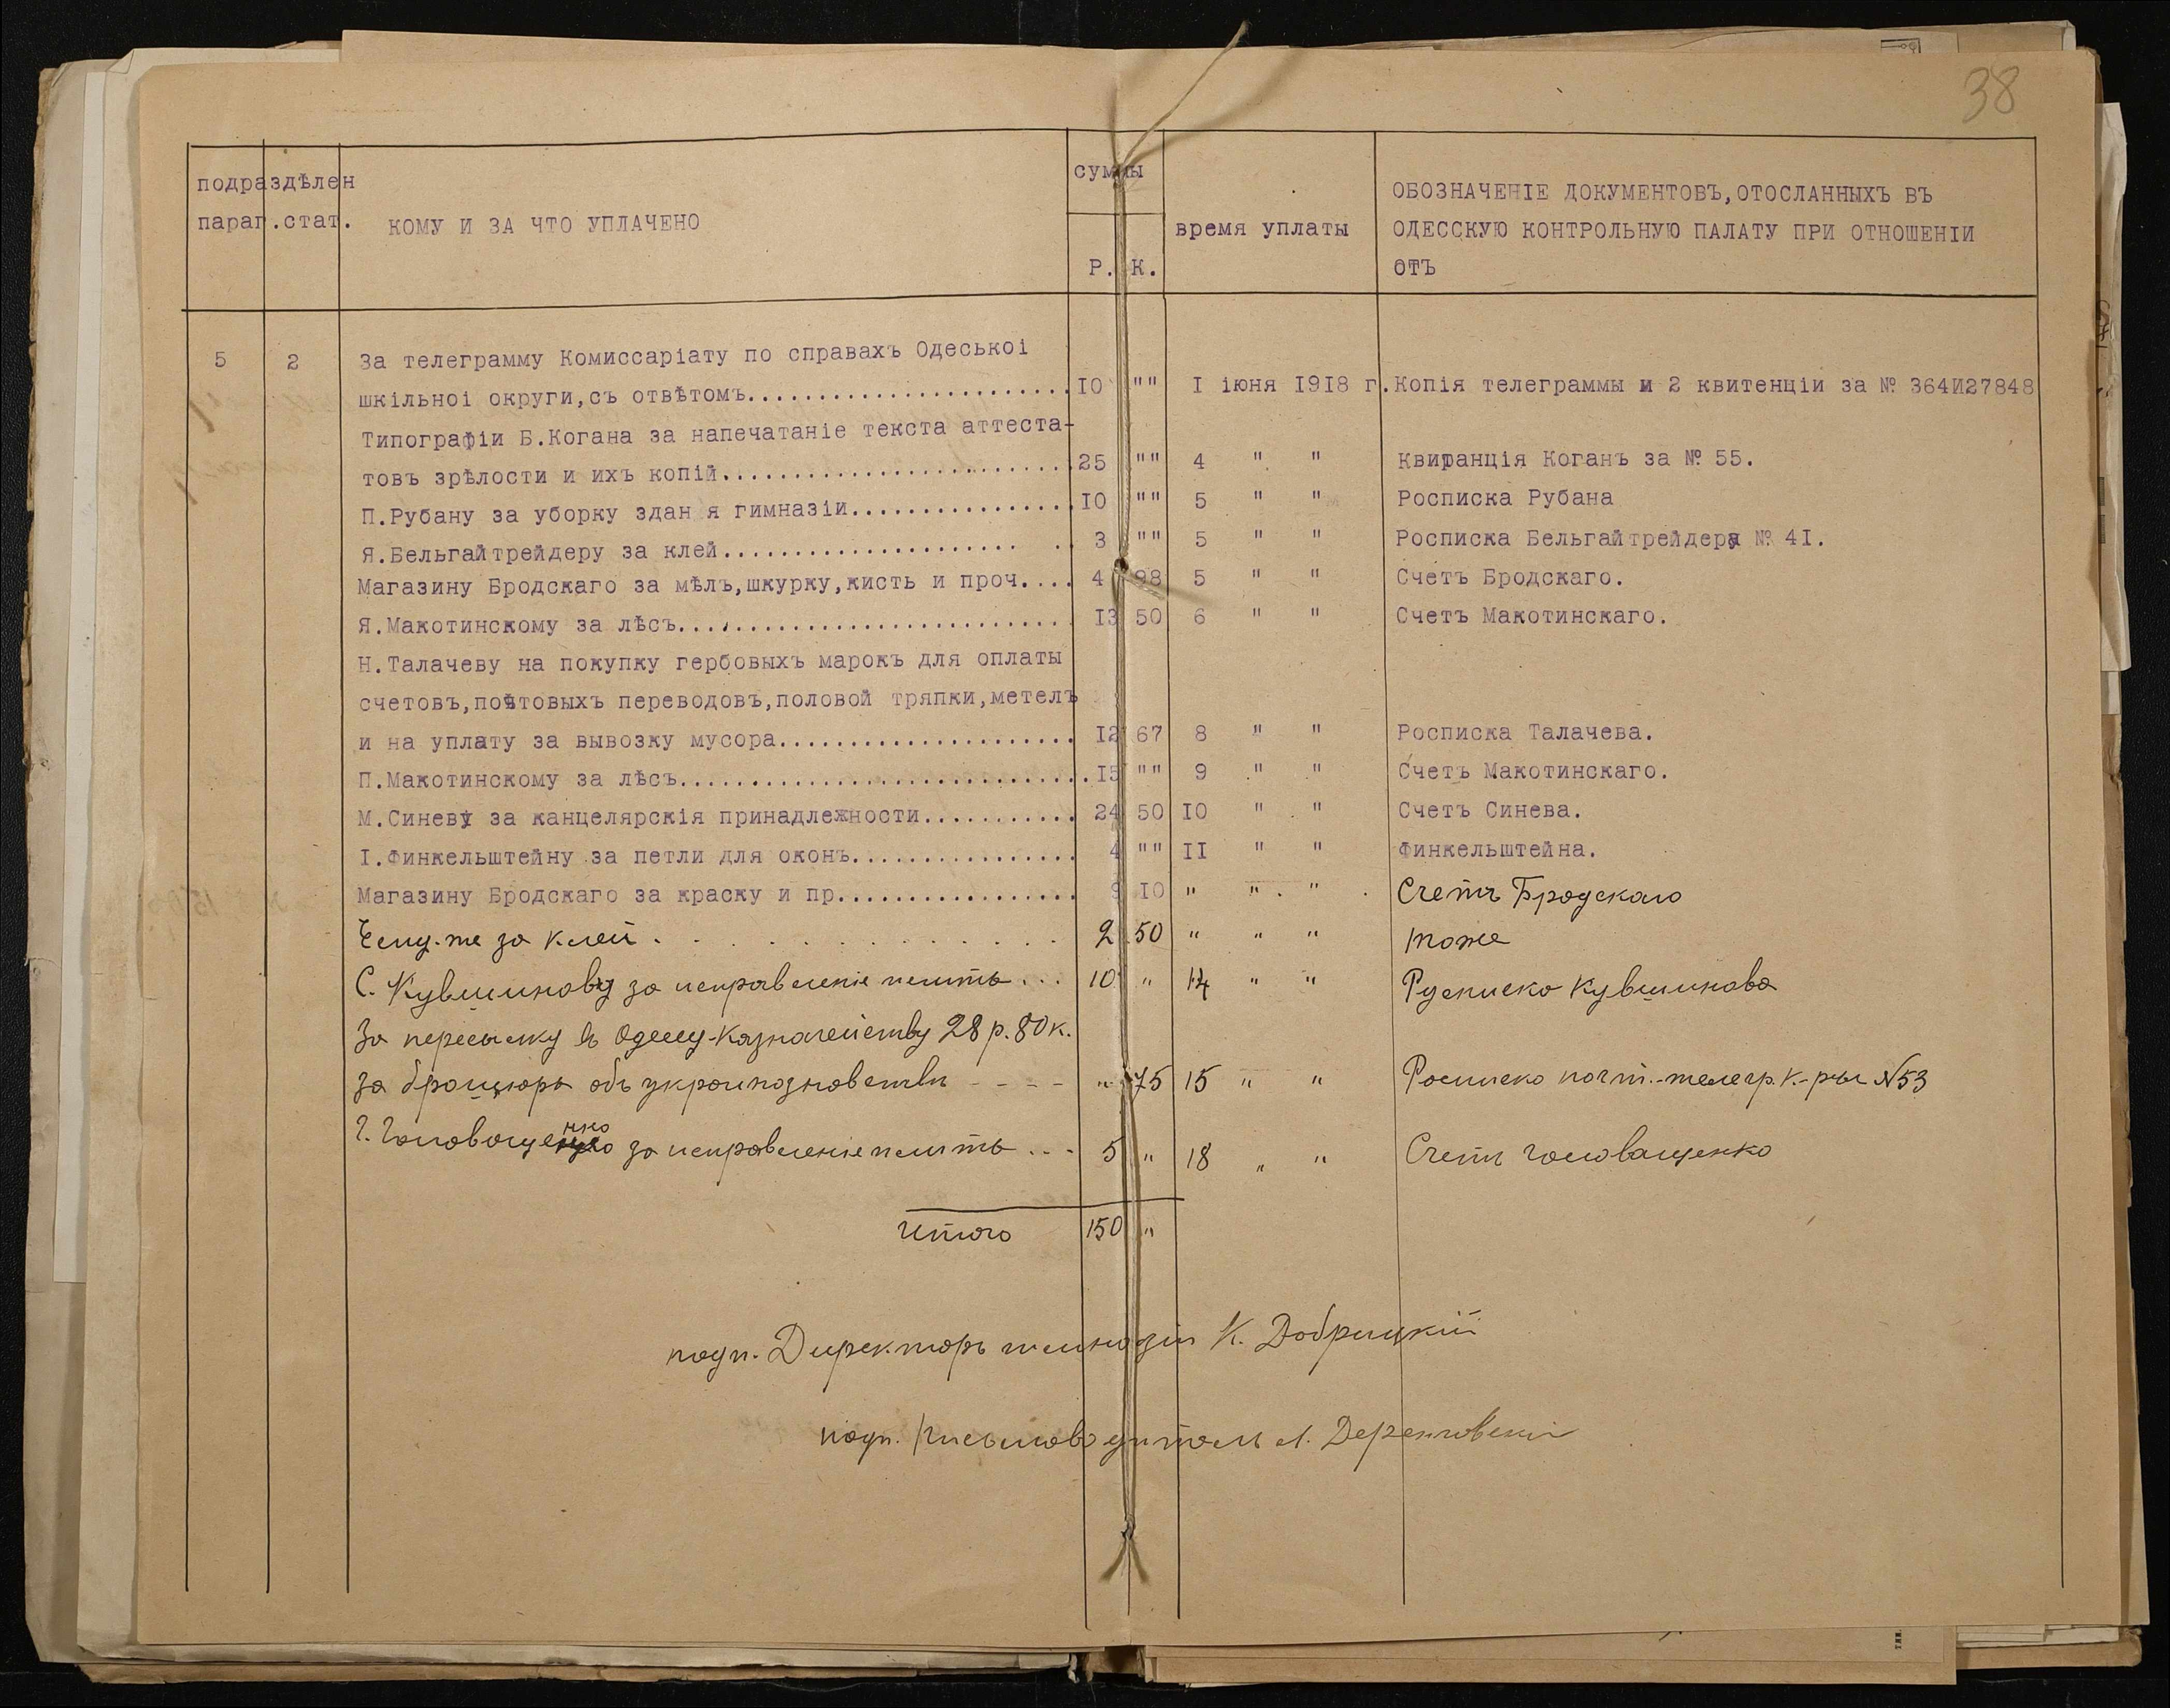 38
подраздѣлен
параг.стат.
КОМУ И ЗА ЧТО УПЛАЧЕНО
суммы
Р. К.
время уплаты
ОБОЗНАЧЕНІЕ ДОКУМЕНТОВЪ,ОТОСЛАННЫХЪ ВЪ
ОДЕССКУЮ КОНТРОЛЬНУЮ ПАЛАТУ ПРИ ОТНОШЕНІИ
ОТЪ
5 2 За телеграмму Комиссаріату по справахъ Одеськоі
шкільноі округи,съ отвѣтомъ......................... 10 "" I іюня I9I8 г. Копія телеграммы и 2 квитенціи за № 364И27848
Типографіи Б.Когана за напечатаніе текста аттеста-
товъ зрѣлости и ихъ копій......................... 25 "" 4 " " Квитанція Коганъ за № 55.
П.Рубану за уборку здан я гимназіи................ IO "" 5 " " Росписка Рубана
Я.Бельгайтрейдеру за клей..................... .. 3 "" 5 " " Росписка Бельгайтрейдера № 4I.
Магазину Бродскаго за мѣлъ,шкурку,кисть и проч.... 4 98 5 " " Счетъ Бродскаго.
Я.Макотинскому за лѣсъ............................ I3 50 6 " " Счетъ Макотинскаго.
Н.Талачеву на покупку гербовыхъ марокъ для оплаты
счетовъ,почтовыхъ переводовъ,половой тряпки,метелъ
и на уплату за вывозку мусора..................... I2 67 8 " " Росписка Талачева.
П.Макотинскому за лѣсъ............................. I5 "" 9 " " Счетъ Макотинскаго.
М.Синеву за канцелярскія принадлежности........... 24 50 IO " " Счетъ Синева.
І.Финкельштейну за петли для оконъ................ 4 "" II " " Финкельштейна.
Магазину Бродскаго за краску и пр................. 9 IO " " " Счетъ Бродскаго
Ему-же за клей . . . . . . . . . . . 2 50 " " " тоже
С. Кувшинову за исправленіе плиты . . . 10 " 14 " " Росписка Кувшинова
За пересылку въ Одессу-Казначейству 28 р. 80 к.
за брошюры объ украинознавстві - - - - " 75 15 " " Росписка почт.-телегр. к-ры №53
Г. Головащенко за исправленіе плиты . . . 5 " 18 " " Счетъ Головащенко
Итого 150 "
подп. Директоръ гимназіи К. Добрицкій
подп. Письмоводитель Л. Деренковскій